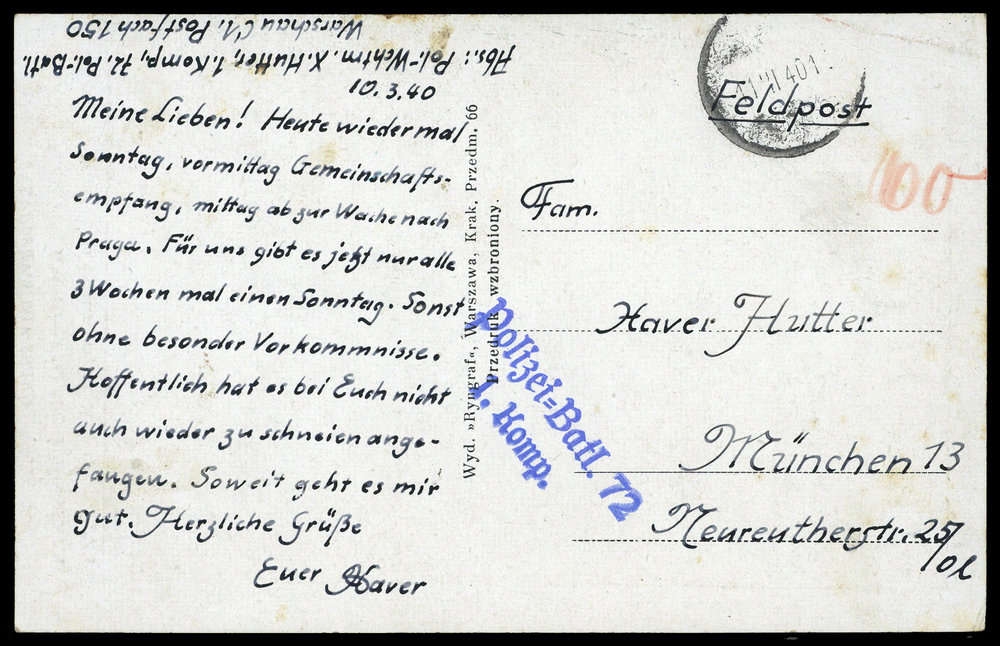 Abs.: Pol.-Wchtm. X. Hutter, 1. Komp., 72. Pol.-Batl.
Warschau C 1, Postfach 150
10. 3. 40
Meine Lieben! Heute wieder mal
Sonntag, vormittag Gemeinschafts-
empfang, mittag ab zur Wache nach
Praga. Für uns gibt es jetzt nur alle
3 Wochen mal einen Sonntag. Sonst
ohne besonder Vorkommnisse.
Hoffentlich hat es bei Euch nicht
auch wieder zu schneien ange-
fangen. Soweit geht es mir
gut. Herzliche Grüße
Euer Xaver
Wyd. »Ryngraf«, Warszawa, Krak. Przedm. 66
Przedruk wzbroniony.
Polizei-Batl. 72
1. Komp.
Feldpost
100
Fam.
Xaver Hutter
München 13
Neureutherstr. 25/